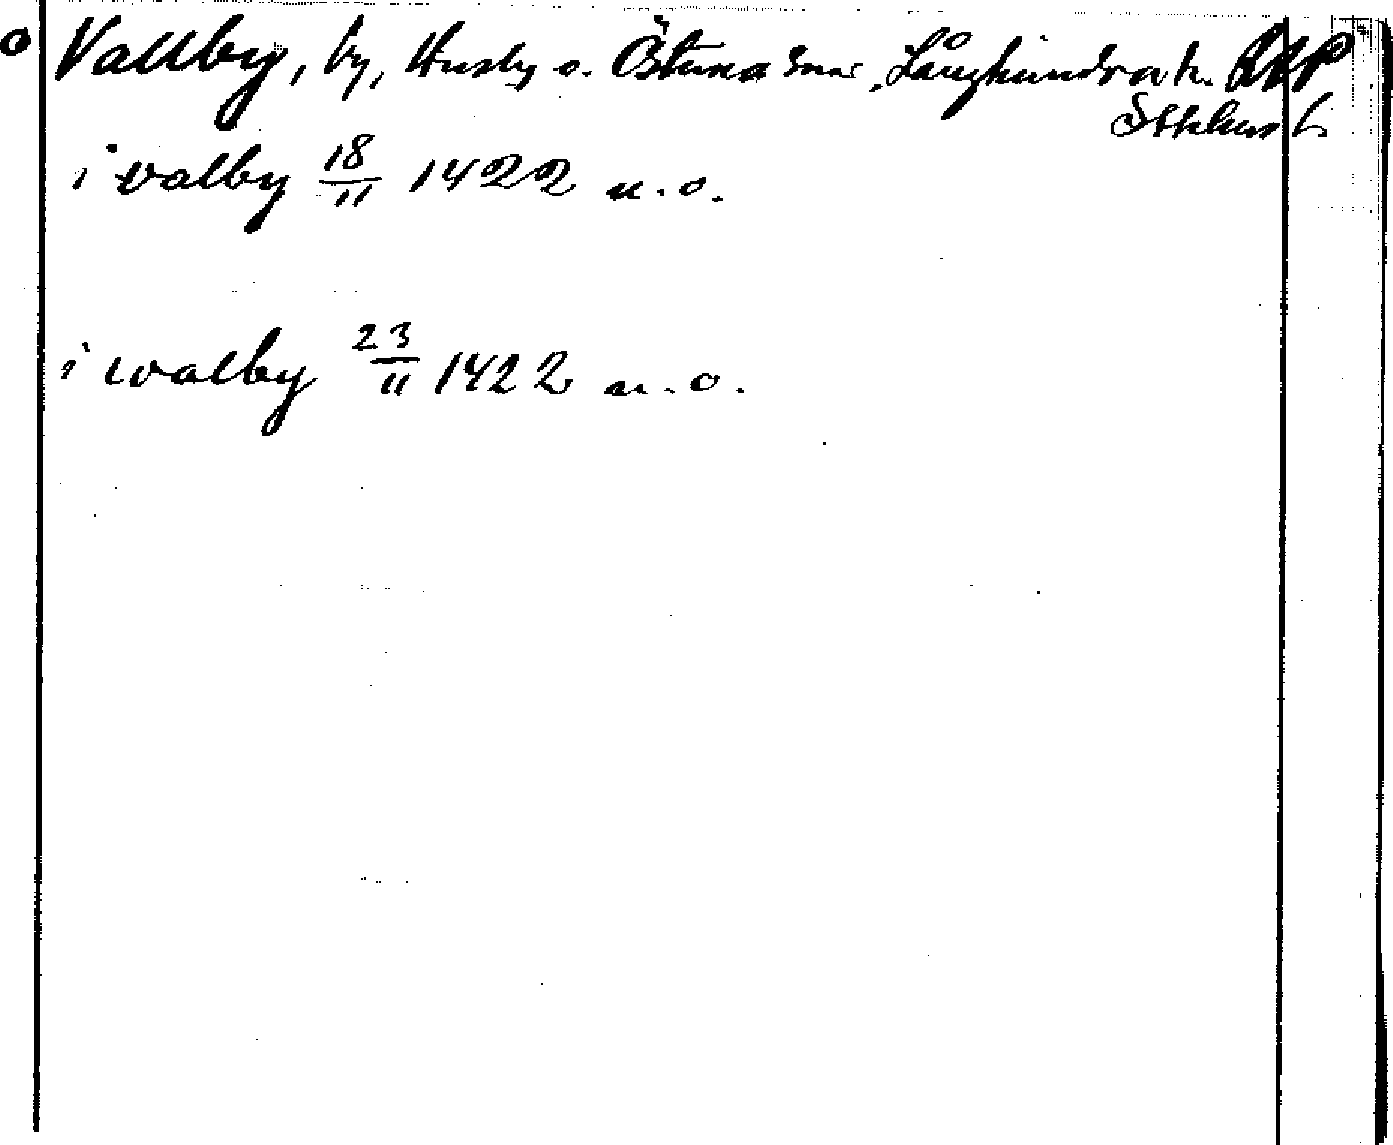 o Vallby, by, Husby o. Östuna snr, Långhundra h.
Sthlms l.
i valby 18/11 1422 u.o.
i walby 23/11 1422 u.o.